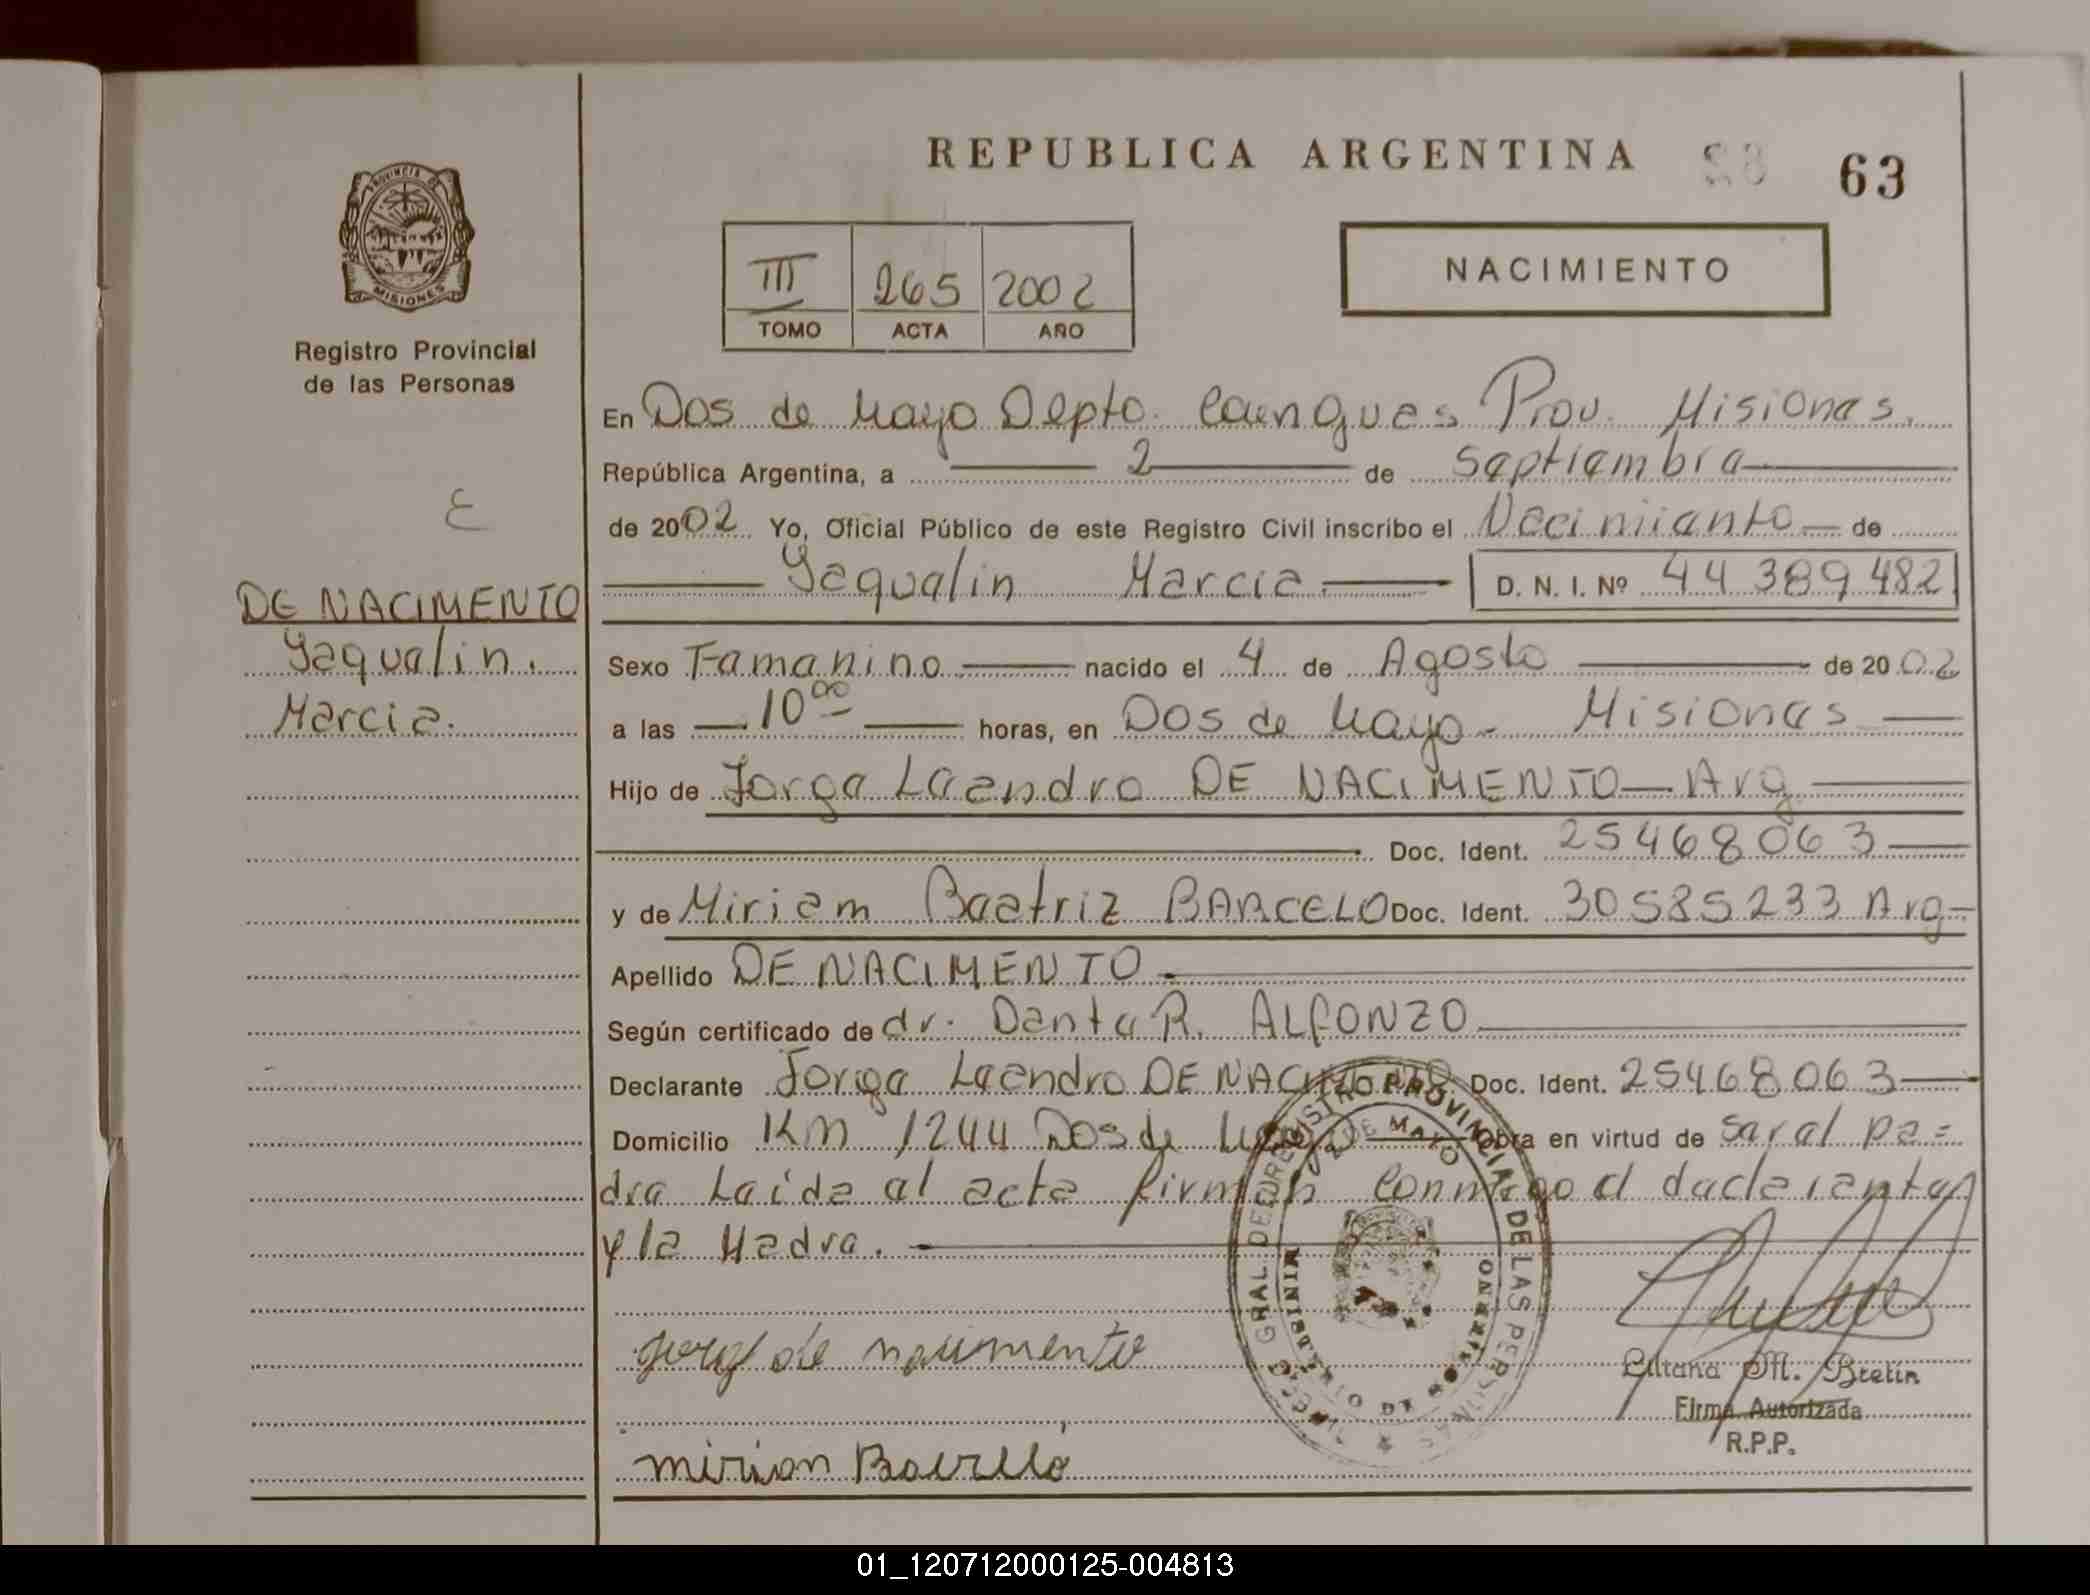 REPUBLICA ARGENTINA
63
PROVINCIA DE
MISIONES
Registro Provincial
de las Personas
III 265 2002
TOMO ACTA AÑO
NACIMIENTO
En Dos de Mayo Depto. Cainguas Prov. Misiones.
República Argentina, a 2 de Septiembre
de 2002 Yo, Oficial Público de este Registro Civil inscribo el Nacimiento de
Yaqualin Marcia D. N. I. Nº 44 389 482
DE NACIMENTO
Yaqualin.
Marcia.
Sexo Femenino nacido el 4 de Agosto de 2002
a las 10 00 horas, en Dos de Mayo - Misiones
Hijo de Jorge Leandro DE NACIMENTO Arg
Doc. Ident. 25468063
y de Miriam Beatriz BARCELO Doc. Ident. 30585233 Arg
Apellido DE NACIMENTO
Según certificado de dr. Dante R. ALFONZO
Declarante Jorge Leandro DE NACIMENTO Doc. Ident. 25468063
Domicilio KM 1244 Dos de Mayo Obra en virtud de ser el pa=
dre Leida el acta firman conmigo el declarante
y la Madre.
DIRECC. GRAL. DEL REGISTRO PROVINCIAL DE LAS PERSONAS
2 DE MAYO
MINISTERIO DE GOBIERNO
jorge de nacimento
Mirian Barcelo
Liliana M. Bretin
Firma Autorizada
R.P.P.
01_120712000125-004813